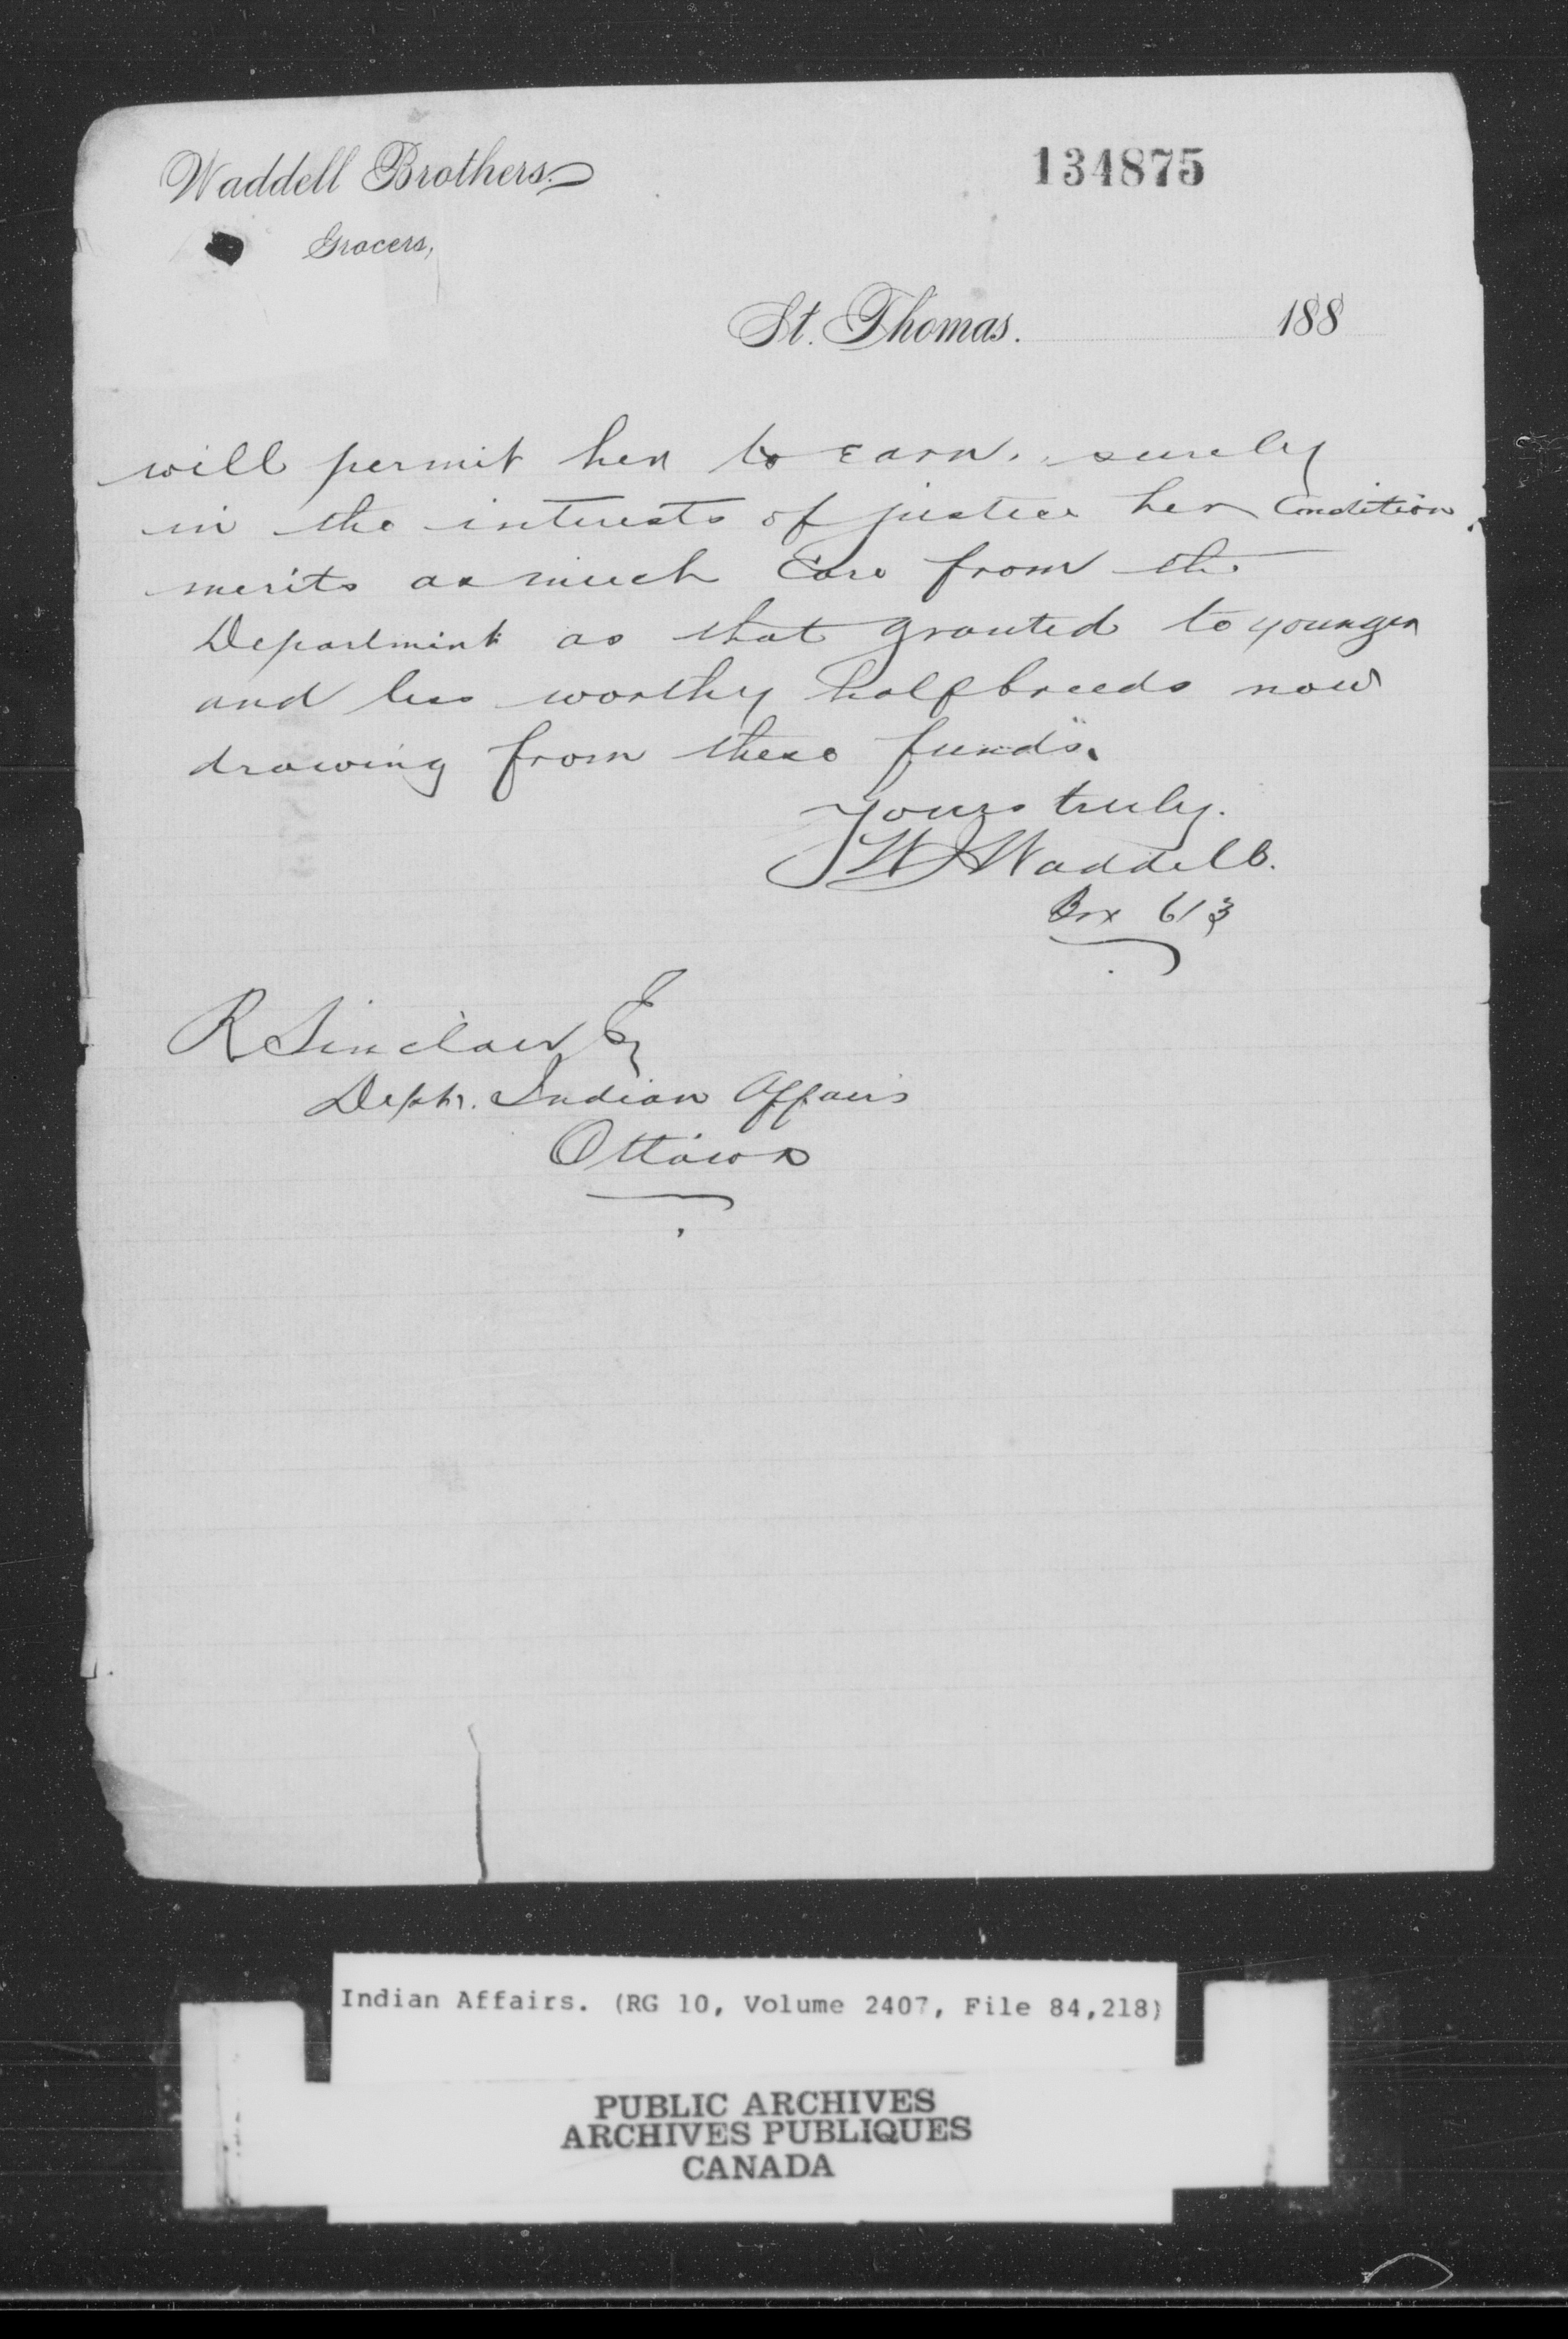 Waddell Brothers.
134875
Grocers,
St. Thomas. 188
will permit her to earn. surely
in the interests of justice her Condition
merits as much Care from the
Department as that granted to younger
and less worthy halfbreeds now
drawing from these funds".
Yours truly.
W J Waddell.
Box 613
R Sinclair Eq
Deptr. Indian Affairs
Ottawa
Indian Affairs. (RG 10, Volume 2407, File 84,218)
PUBLIC ARCHIVES
ARCHIVES PUBLIQUES
CANADA